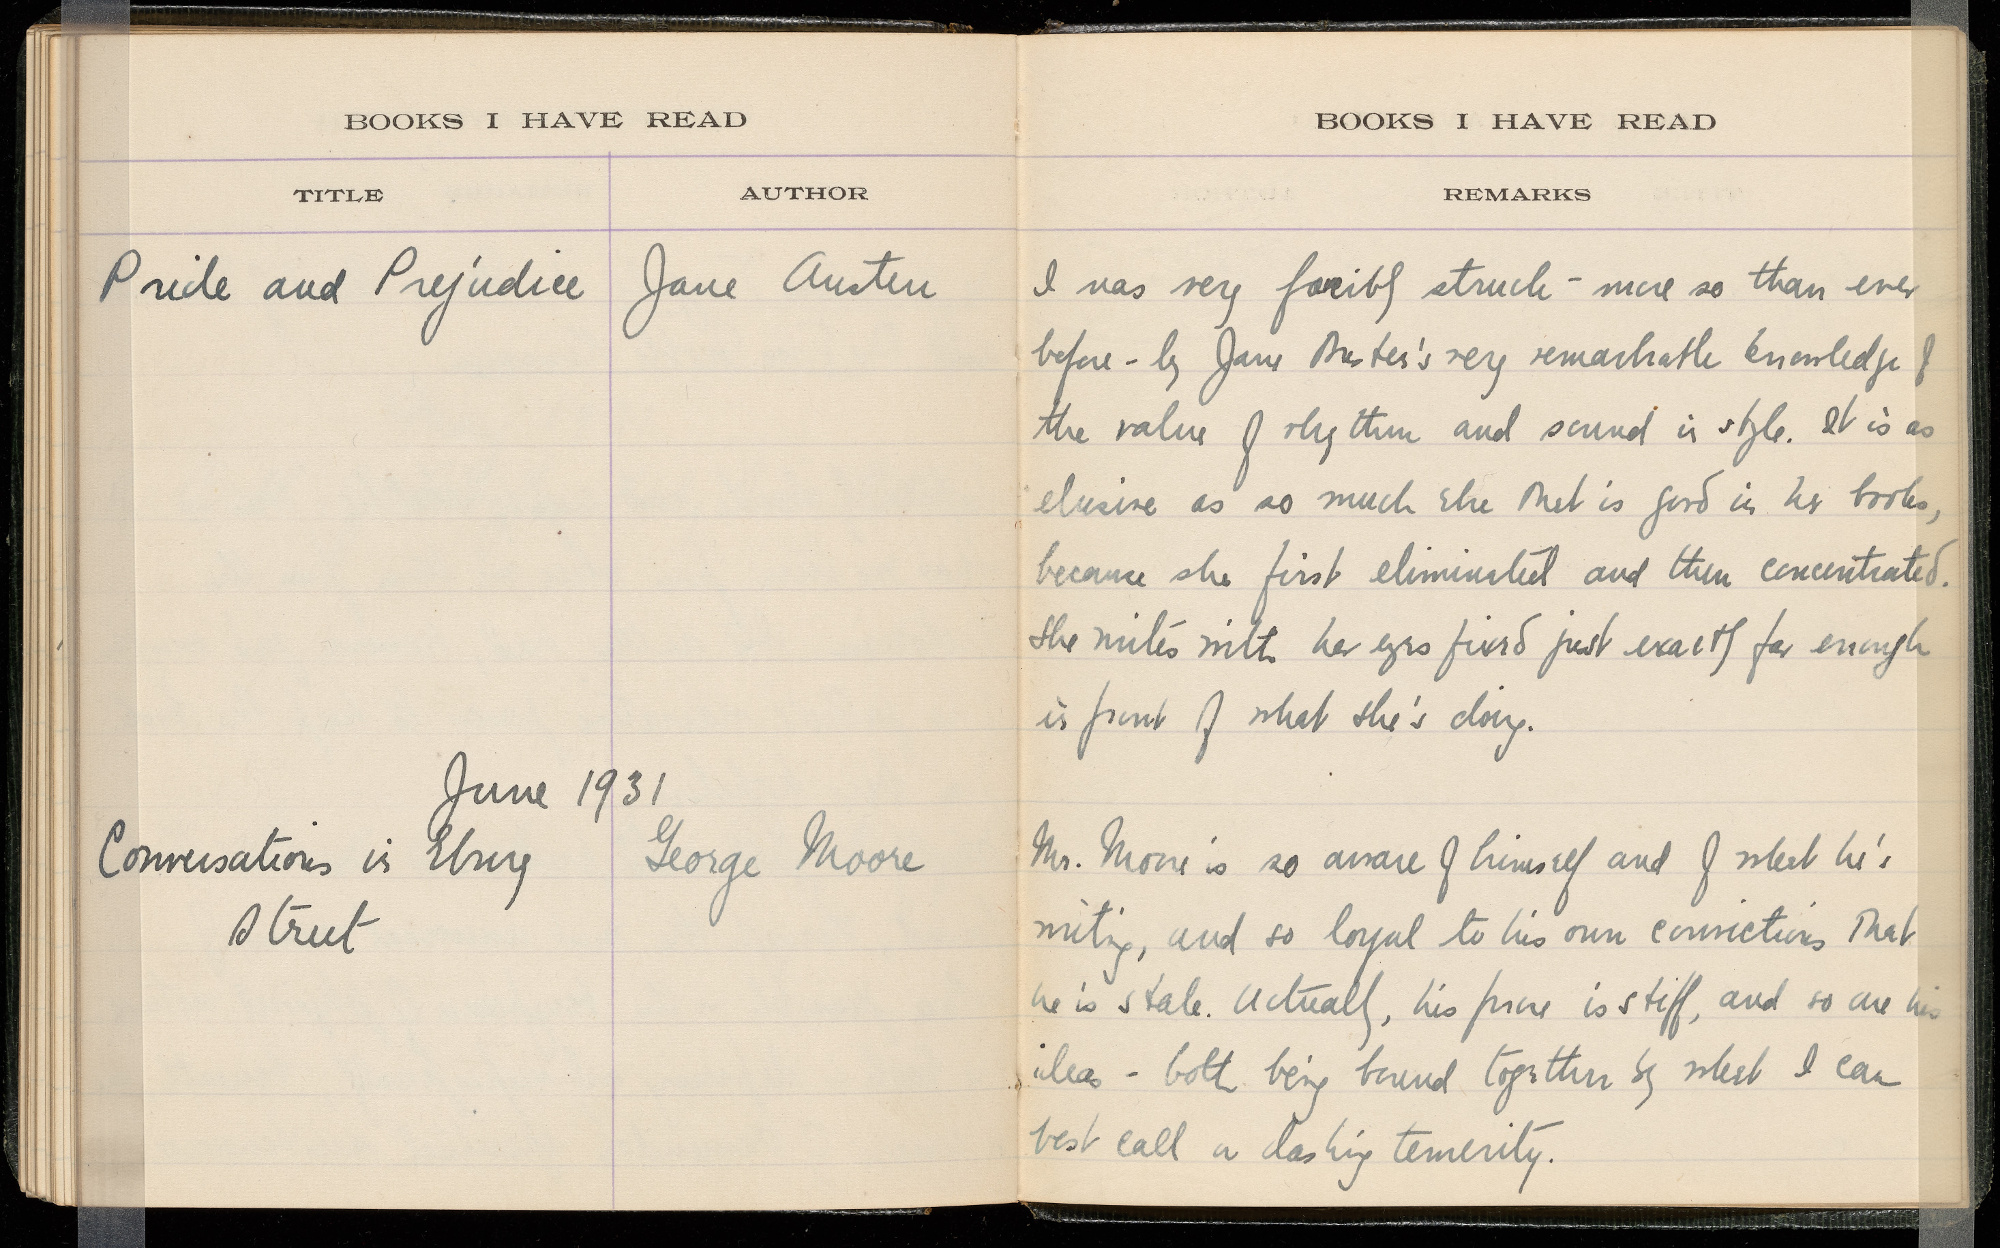 BOOKS I HAVE READ
TITLE
AUTHOR
Pride and Prejudice
Jane Austen
June 1931
Conversations in Ebury
Street
George Moore
BOOKS I HAVE READ
REMARKS
I was very forcibly struck - more so than ever
before - by Jane Austen's very remarkable knowledge of
the value of rhythm and sound in style. It is as
elusive as so much else that is good in her books,
because she first eliminated and then concentrated.
She writes with her eyes fixed just exactly far enough
in front of what she's doing.
Mr. Moore is so aware of himself and of what he's
writing, and so loyal to his own convictions that
he is stale. Actually, his prose is stiff, and so are his
ideas - both being bound together by what I can
best call a dashing temerity.